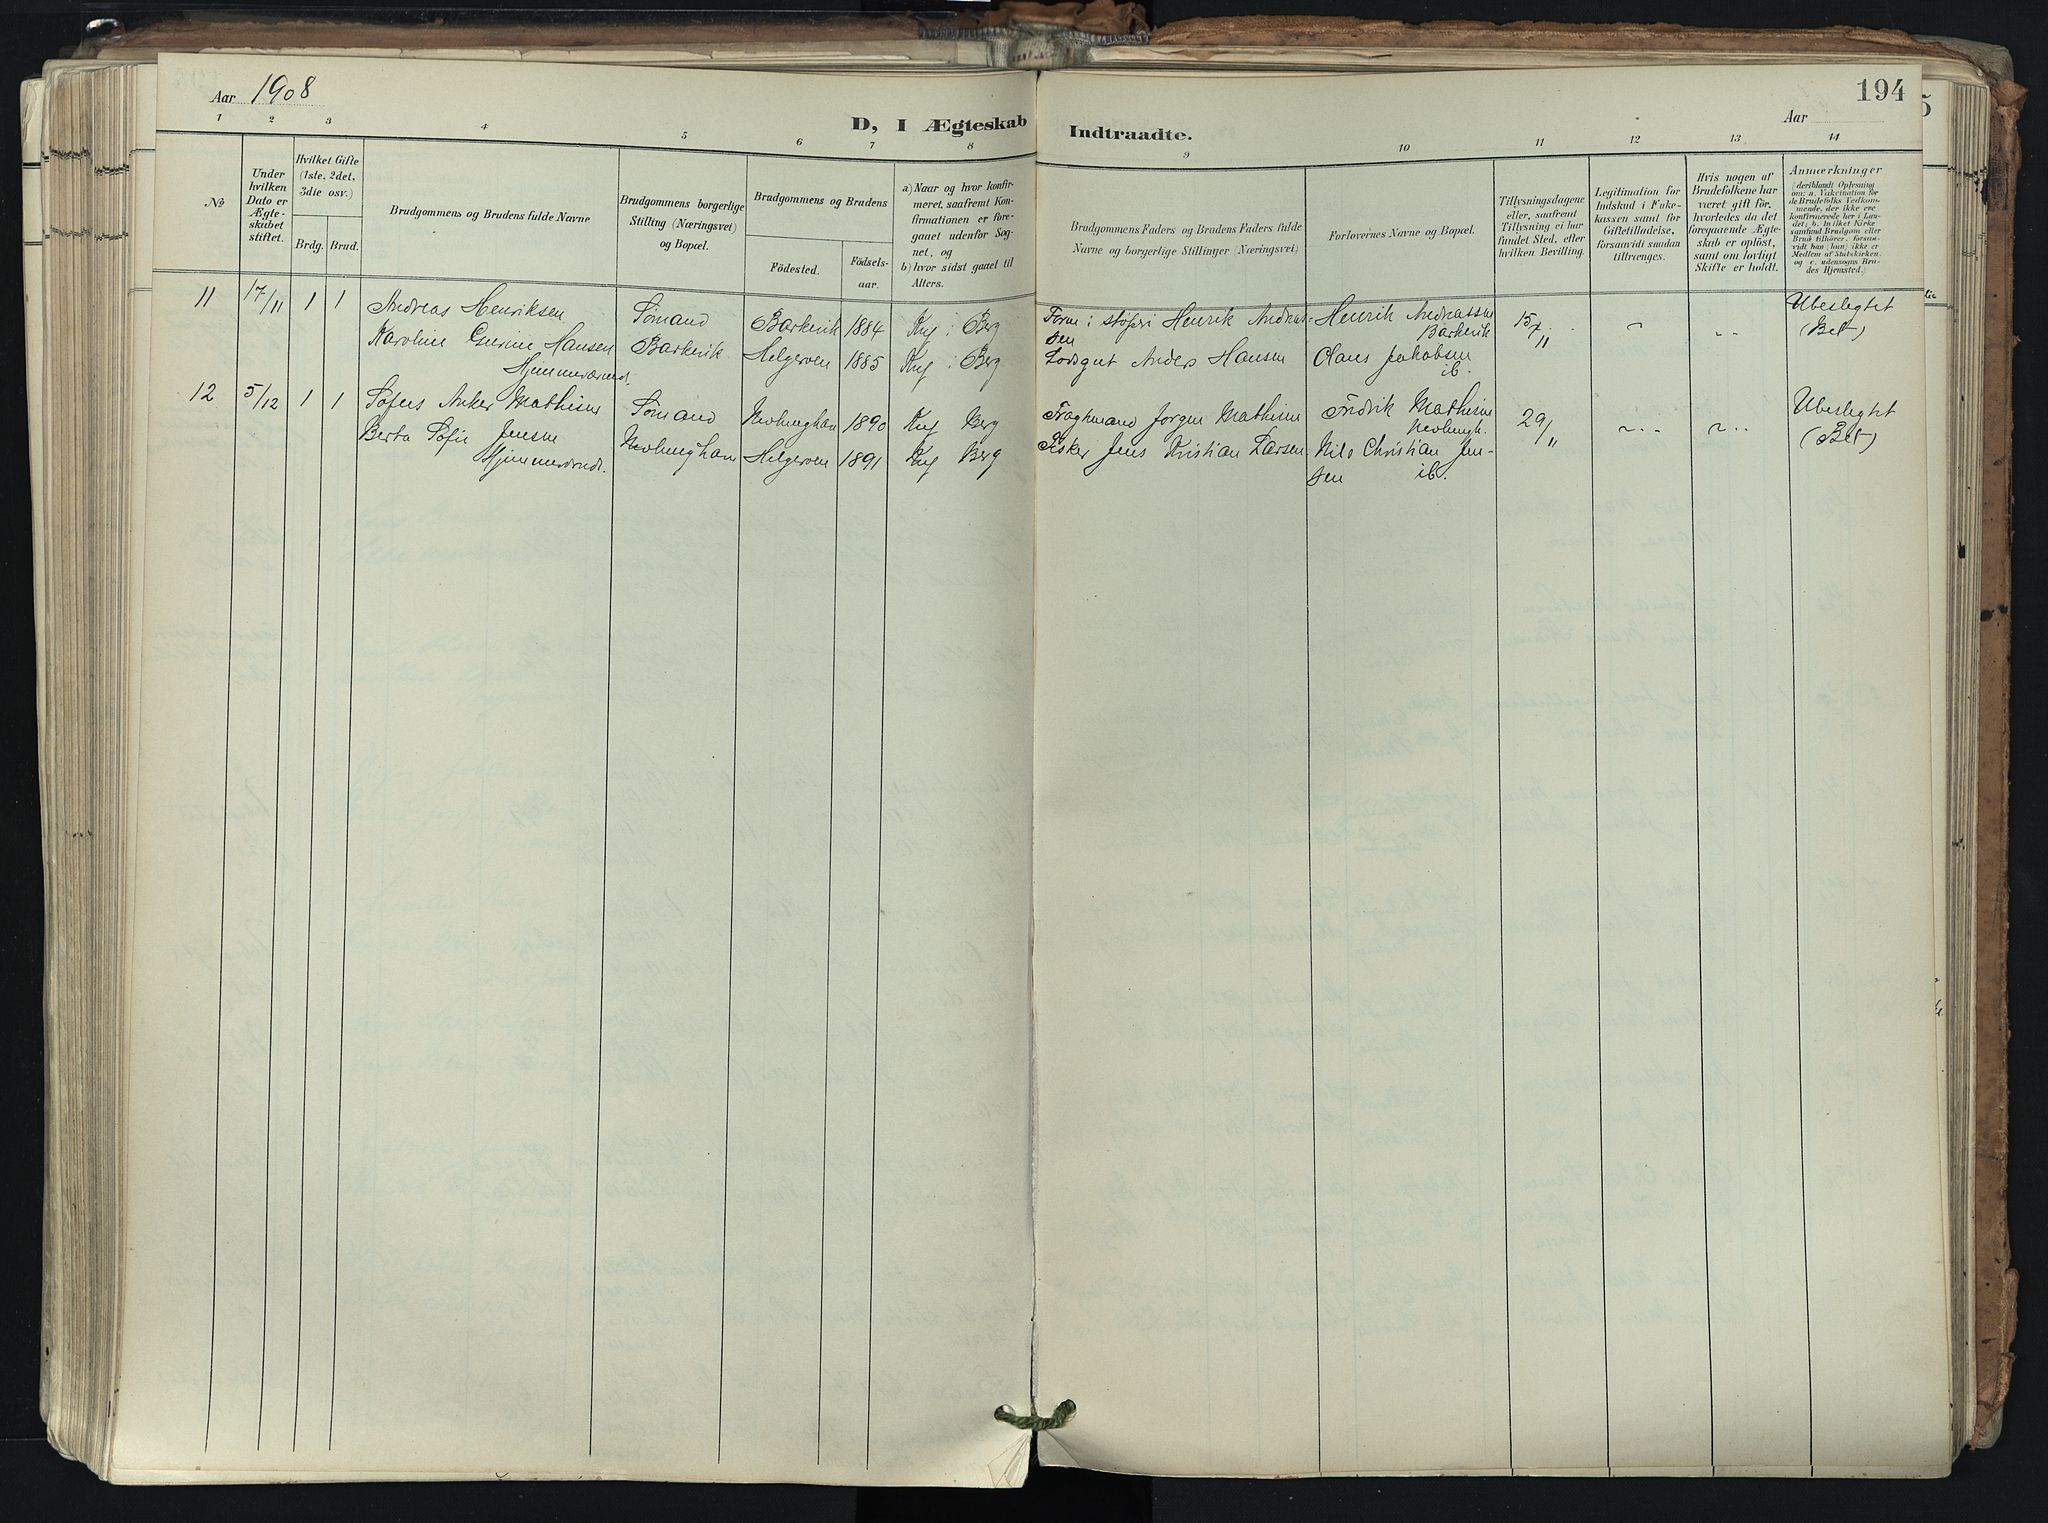 Aar 1908
194
Aar
D, I Ægteskab Indtraadte.
1 2 3 4 5 6 7 8 9 10 11 12 13 14
No
Under hvilken Dato er Ægteskabet stiftet.
Hvilket Gifte (1ste, 2det, 3die osv.)
Brdg. Brud.
Brudgommens og Brudens fulde Navne
Brudgommens borgerlige Stilling (Næringsvei) og Bopæl.
Brudgommens og Brudens
Födested.
Födsels-aar.
a) Naar og hvor konfirmeret, saafremt Konfirmationen er foregaaet udenfor Sognet, og
b) hvor sidst gaaet til Alters.
Brudgommens Faders og Brudens Faders fulde Navne og borgerlige Stillinger (Næringsvei)
Forlovernes Navne og Bopæl.
Tillysningsdagene eller, saafremt Tillysning ei har fundet Sted, efter hvilken Bevilling.
Legitimation for Indskud i Enkekassen samt for Giftetilladelse, forsaavidt saadan tiltrænges.
Hvis nogen af Brudefolkene har været gift för, hvorledes da det foregaaende Ægteskab er oplöst, samt om lovligt Skifte er holdt.
Anmærkninger
(deriblandt Oplysning om: a. Vakcination for de Brudefolks Vedkommende, der ikke ere konfirmerede her i Landet; b. Hvilket Kirkesamfund Brudgom eller Brud tilhörer, forsaavidt han (hun) ikke er Medlem af Statskirken, og c. udensogns Brudes Hjemsted.)
11 17/11 1 1 Andreas Henriksen Sömand Barkevik 1884 Kng i Berg Henrik Andreassen 15/11 Ubeslegtet
Barkevik (Bet)
Karoline Gurine Hansen Barkevik Helgeroen 1885 Kng i Berg Anders Hansen Claus Jakobsen
ib.
12 5/12 1 1 Anker Mathisen Sömand Nevlunghavn 1890 Kng Berg Jörgen Mathisen Fredrik Mathisen 29/11 Ubeslegtet
Nevlungh. (Bet)
Berta Sofie Jensen Nevlunghavn Helgeroen 1891 Kng Berg Fisker Jens Kristian Larsen Nils Christian Jensen
ib.